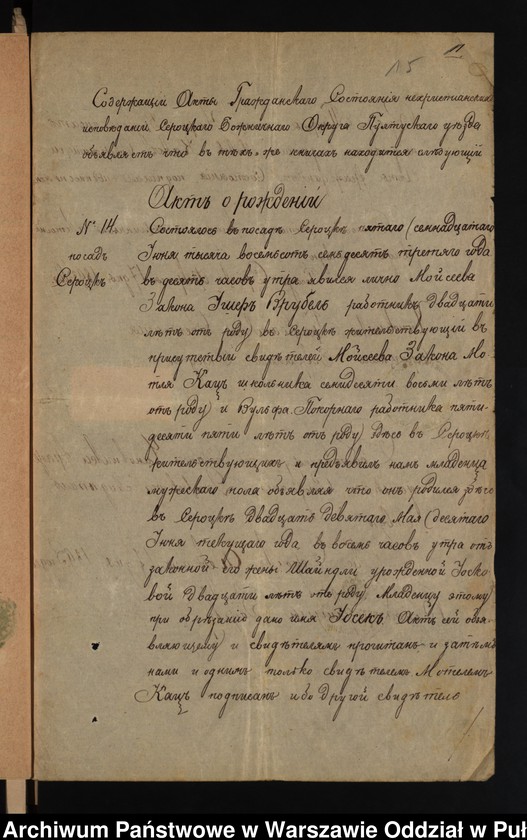 11
N5
Содержащій Акты Гражданскаго Состоянія нехристіанскихъ
исповѣданій Сероцкаго Божничнаго Округа Пултускаго уѣзда
объявляетъ что въ тѣхъ-же книгахъ находится слѣдующій
Актъ о рожденіи
№ 14.
посадъ
Сероцкъ
Состоялось въ посадѣ Сероцкѣ пятаго (семнадцатаго
Іюня тысяча восемьсотъ семьдесятъ третяго года
въ десять часовъ утра явился лично Мойсеева
Закона Эшеръ Врубель работникъ двадцати
лѣтъ отъ роду въ Сероцкѣ жительствующій въ
присутствіи свидѣтелей Мойсеева Закона Мо-
тля Кацъ школьника семидесяти восьми лѣтъ
отъ роду) и Вульфа Покорнаго работника пяти-
десяти пяти лѣтъ отъ роду) здѣсь въ Сероцкѣ
жительствующихъ и предъявилъ намъ младенца
мужескаго пола объявляя что онъ родился здѣсь
въ Сероцкѣ двадцать девятаго Мая (десятаго
Іюня текущаго года въ восемь часовъ утра отъ
законной его жены Шайндли урожденной Іоско-
вой двадцати лѣтъ отъ роду, Младенцу этому
при обрѣзаніи дано имя Актъ сей объя-
вляющему и свидѣтелямъ прочитанъ и затѣмъ
нами и однимъ только свидѣтелемъ Мотелемъ
Кацъ подписанъ ибо другой свидѣтель
Archiwum Państwowe w Warszawie Oddział w Puł